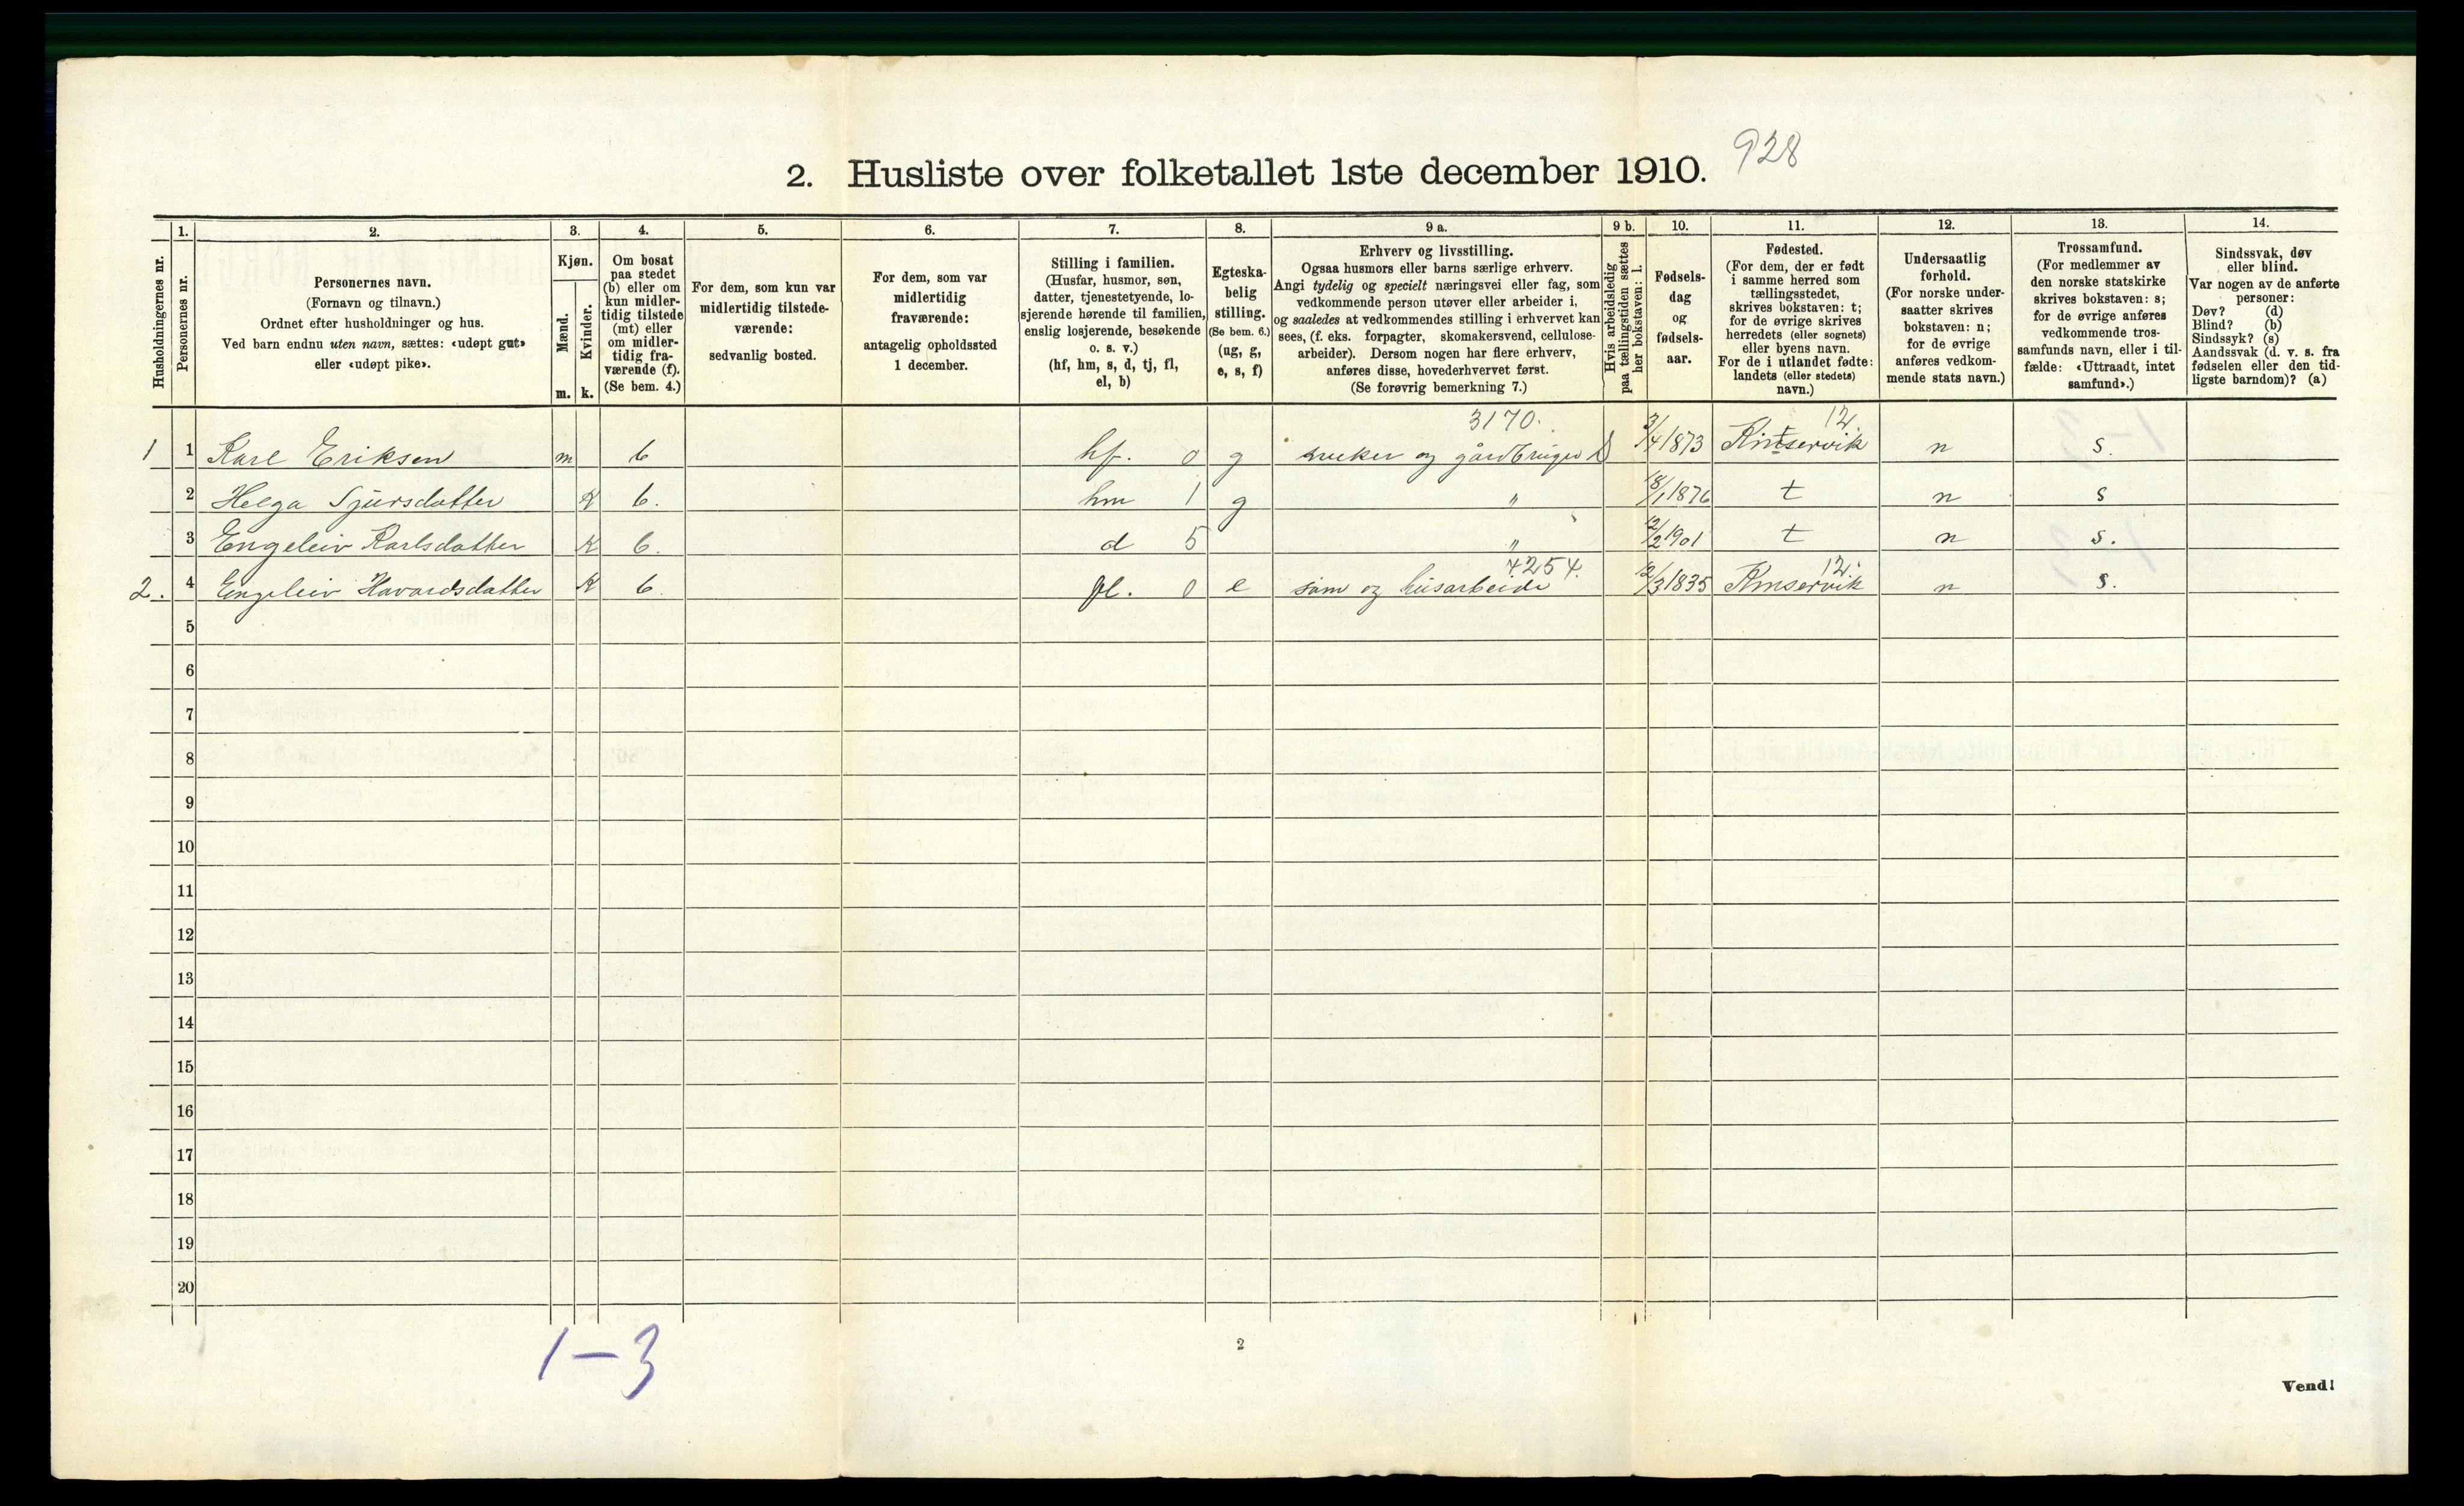 928
2. Husliste over folketallet 1ste december 1910.
Husholdningernes nr.
1.
Personernes nr.
2.
Personernes navn.
(Fornavn og tilnavn.)
Ordnet efter husholdninger og hus.
Ved barn endnu uten navn, sættes: «udøpt gut»
eller «udøpt pike».
3.
Kjøn.
Mænd.
m.
Kvinder.
k.
4.
Om bosat
paa stedet
(b) eller om
kun midler-
tidig tilstede
(mt) eller
om midler-
tidig fra-
værende (f).
(Se bem. 4.)
5.
For dem, som kun var
midlertidig tilstede-
værende:
sedvanlig bosted.
6.
For dem, som var
midlertidig
fraværende:
antagelig opholdssted
1 december.
7.
Stilling i familien.
(Husfar, husmor, søn,
datter, tjenestetyende, lo-
sjerende hørende til familien,
enslig losjerende, besøkende
o. s. v.)
(hf, hm, s, d, tj, fl,
el, b)
8.
Egteska-
belig
stilling.
(Se bem. 6.)
(ug, g,
e, s, f)
9 a.
Erhverv og livsstilling.
Ogsaa husmors eller barns særlige erhverv.
Angi tydelig og specielt næringsvei eller fag, som
vedkommende person utøver eller arbeider i,
og saaledes at vedkommendes stilling i erhvervet kan
sees, (f. eks. forpagter, skomakersvend, cellulose-
arbeider). Dersom nogen har flere erhverv,
anføres disse, hovederhvervet først.
(Se forøvrig bemerkning 7.)
9 b.
Hvis arbeidsledig
paa tællingstiden sættes
her bokstaven: l.
10.
Fødsels-
dag
og
fødsels-
aar.
11.
Fødested.
(For dem, der er født
i samme herred som
tællingsstedet,
skrives bokstaven: t;
for de øvrige skrives
herredets (eller sognets)
eller byens navn.
For de i utlandet fødte:
landets (eller stedets)
navn.)
12.
Undersaatlig
forhold.
(For norske under-
saatter skrives
bokstaven: n;
for de øvrige
anføres vedkom-
mende stats navn.)
13.
Trossamfund.
(For medlemmer av
den norske statskirke
skrives bokstaven: s;
for de øvrige anføres
vedkommende tros-
samfunds navn, eller i til-
fælde: «Uttraadt, intet
samfund».)
14.
Sindssvak, døv
eller blind.
Var nogen av de anførte
personer:
Døv? (d)
Blind? (b)
Sindssyk? (s)
Aandssvak (d. v. s. fra
fødselen eller den tid-
ligste barndom)? (a)
3170. 12.
1 1 Karl Eriksen m b hf. 0 g og gårdbruger S 3/4 1873 Kinservik n s.
2 Helga Sjursdatter K b. hm 1 g " 18/1 1876 t n s
3 Engeleiv Karlsdatter K b. d 5 " 12/2 1901 t n s.
4254. 12.
2. 4 Engeleiv Havardsdatter K b. fl. 0 e søm og husarbeide 12/3 1835 Kinservik n s.
5
6
7
8
9
10
11
12
13
14
15
16
17
18
19
20
1-3
2
Vend!